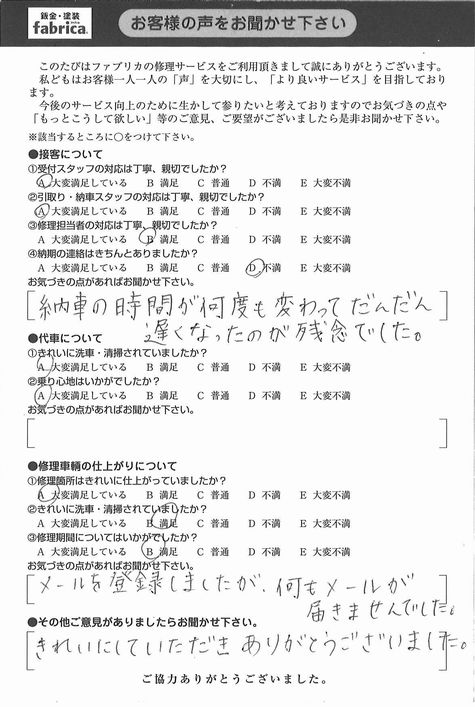 鈑金・塗装
fabrica.
お客様の声をお聞かせ下さい
このたびはファブリカの修理サービスをご利用頂きまして誠にありがとうございます。
私どもはお客様一人一人の「声」を大切にし、「より良いサービス」を目指しており
ます。
今後のサービス向上のために生かして参りたいと考えておりますのでお気づきの点や
「もっとこうして欲しい」等のご意見、ご要望がございましたら是非お聞かせ下さい。
※該当するところに○をつけて下さい。
●接客について
①受付スタッフの対応は丁寧、親切でしたか?
A 大変満足している B 満足 C 普通 D 不満 E 大変不満
②引取り・納車スタッフの対応は丁寧、親切でしたか?
A 大変満足している B 満足 C 普通 D 不満 E 大変不満
③修理担当者の対応は丁寧、親切でしたか?
A 大変満足している B 満足 C 普通 D 不満 E 大変不満
④納期の連絡はきちんとありましたか?
A 大変満足している B 満足 C 普通 D 不満 E 大変不満
お気づきの点があればお聞かせ下さい。
納車の時間が何度も変わってだんだん
遅くなったのが残念でした。
●代車について
①きれいに洗車・清掃されていましたか?
A 大変満足している B 満足 C 普通 D 不満 E 大変不満
②乗り心地はいかがでしたか?
A 大変満足している B 満足 C 普通 D 不満 E 大変不満
お気づきの点があればお聞かせ下さい。
●修理車輌の仕上がりについて
①修理箇所はきれいに仕上がっていましたか?
A 大変満足している B 満足 C 普通 D 不満 E 大変不満
②きれいに洗車・清掃されていましたか?
A 大変満足している B 満足 C 普通 D 不満 E 大変不満
③修理期間についてはいかがでしたか?
A 大変満足している B 満足 C 普通 D 不満 E 大変不満
お気づきの点があればお聞かせ下さい。
メールを登録しましたが、何もメールが
届きませんでした。
●その他ご意見がありましたらお聞かせ下さい。
きれいにしていただきありがとうございました。
ご協力ありがとうございました。